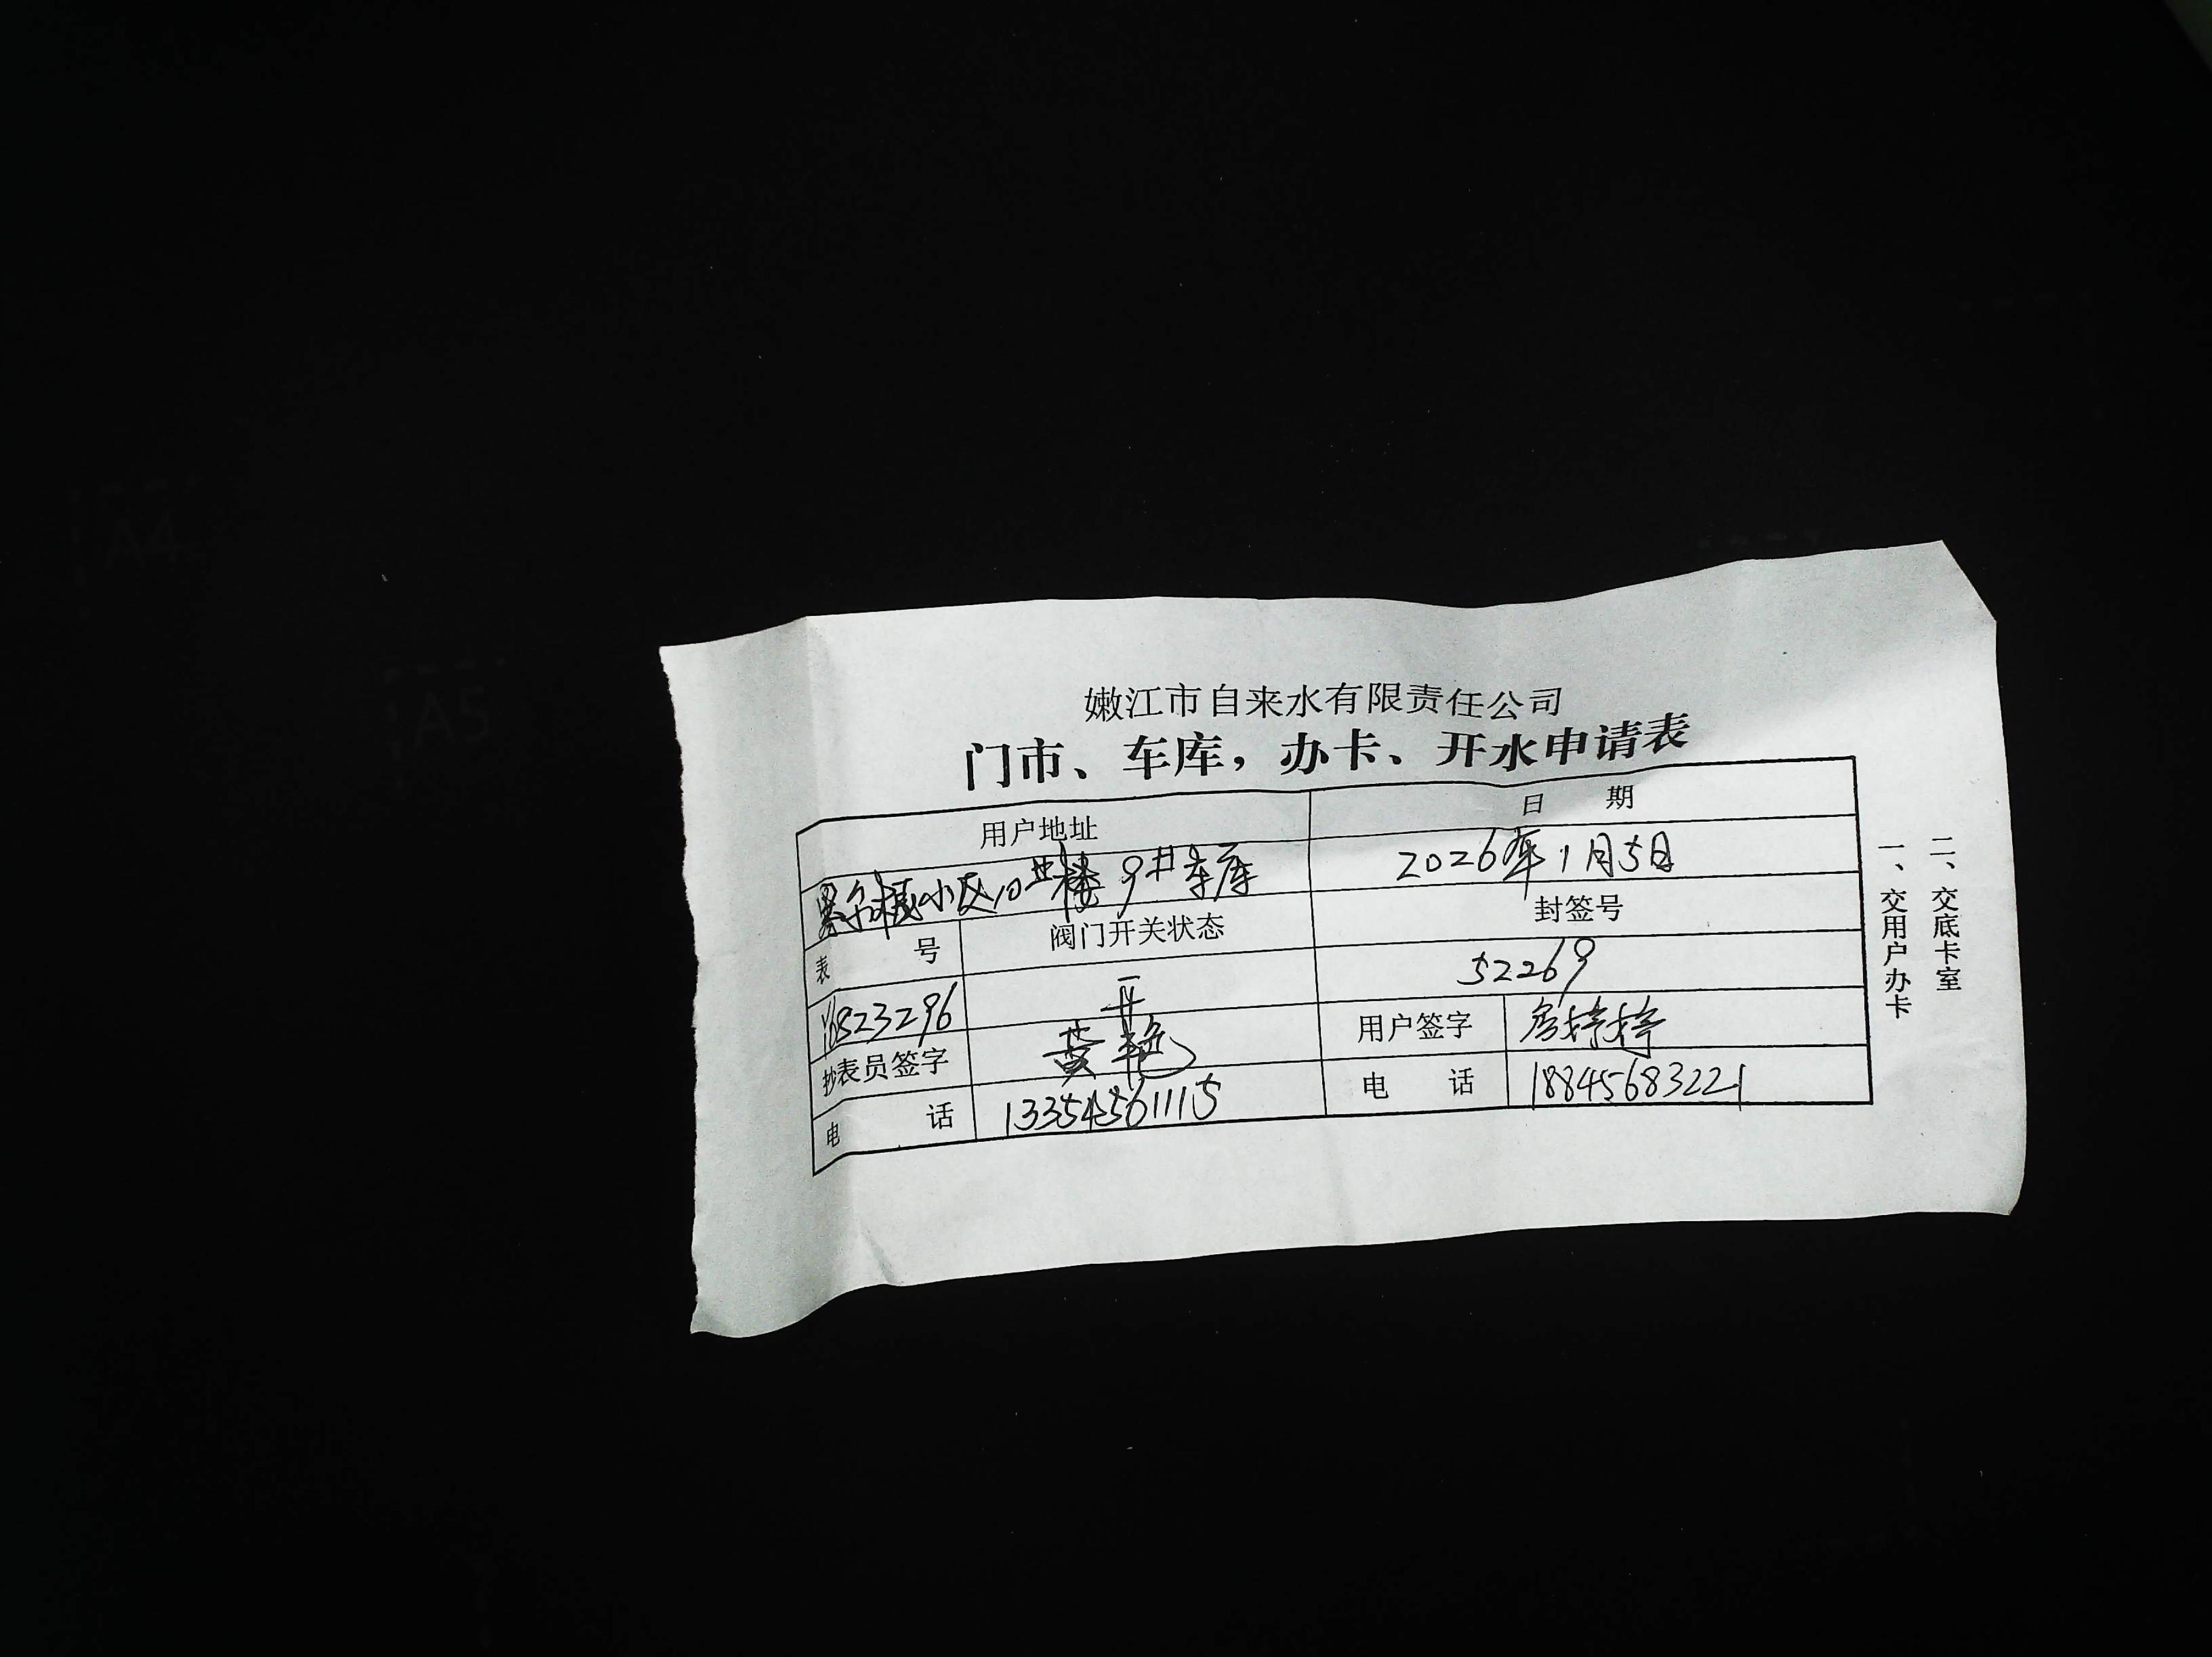 嫩江市自来水有限责任公司
门市、车库，办卡、开水申请表
用户地址 日 期
墨尔根小区10#楼 9#车库 2026年1月5日
表 号 阀门开关状态 封签号
16823296 开 52269
抄表员签字 黄艳 用户签字 房婷婷
电 话 13354561115 电 话 18845683221
一、交用户办卡
二、交底卡室
A4
A5